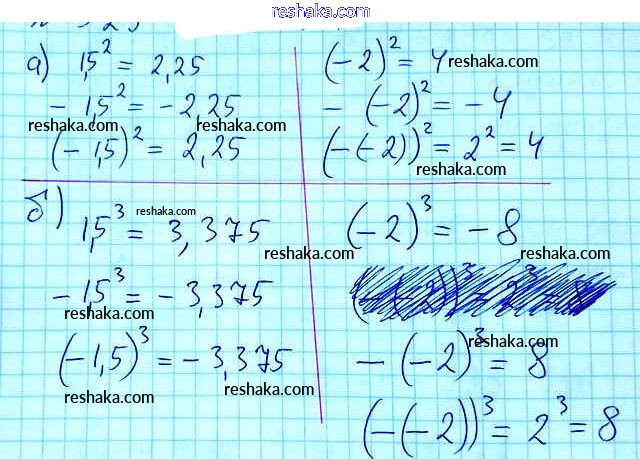 reshaka.com
а) 1,5² = 2,25
(-2)² = 4 reshaka.com
- 1,5² = -2,25
- (-2)² = -4
reshaka.com reshaka.com reshaka.com
(-1,5)² = 2,25
(-(-2))² = 2² = 4
reshaka.com
б) reshaka.com
1,5³ = 3,375
(-2)³ = -8
reshaka.com reshaka.com
-1,5³ = -3,375
reshaka.com reshaka.com
-(-2)³ = 8
reshaka.com
(-1,5)³ = -3,375
reshaka.com reshaka.com
(-(-2))³ = 2³ = 8
reshaka.com